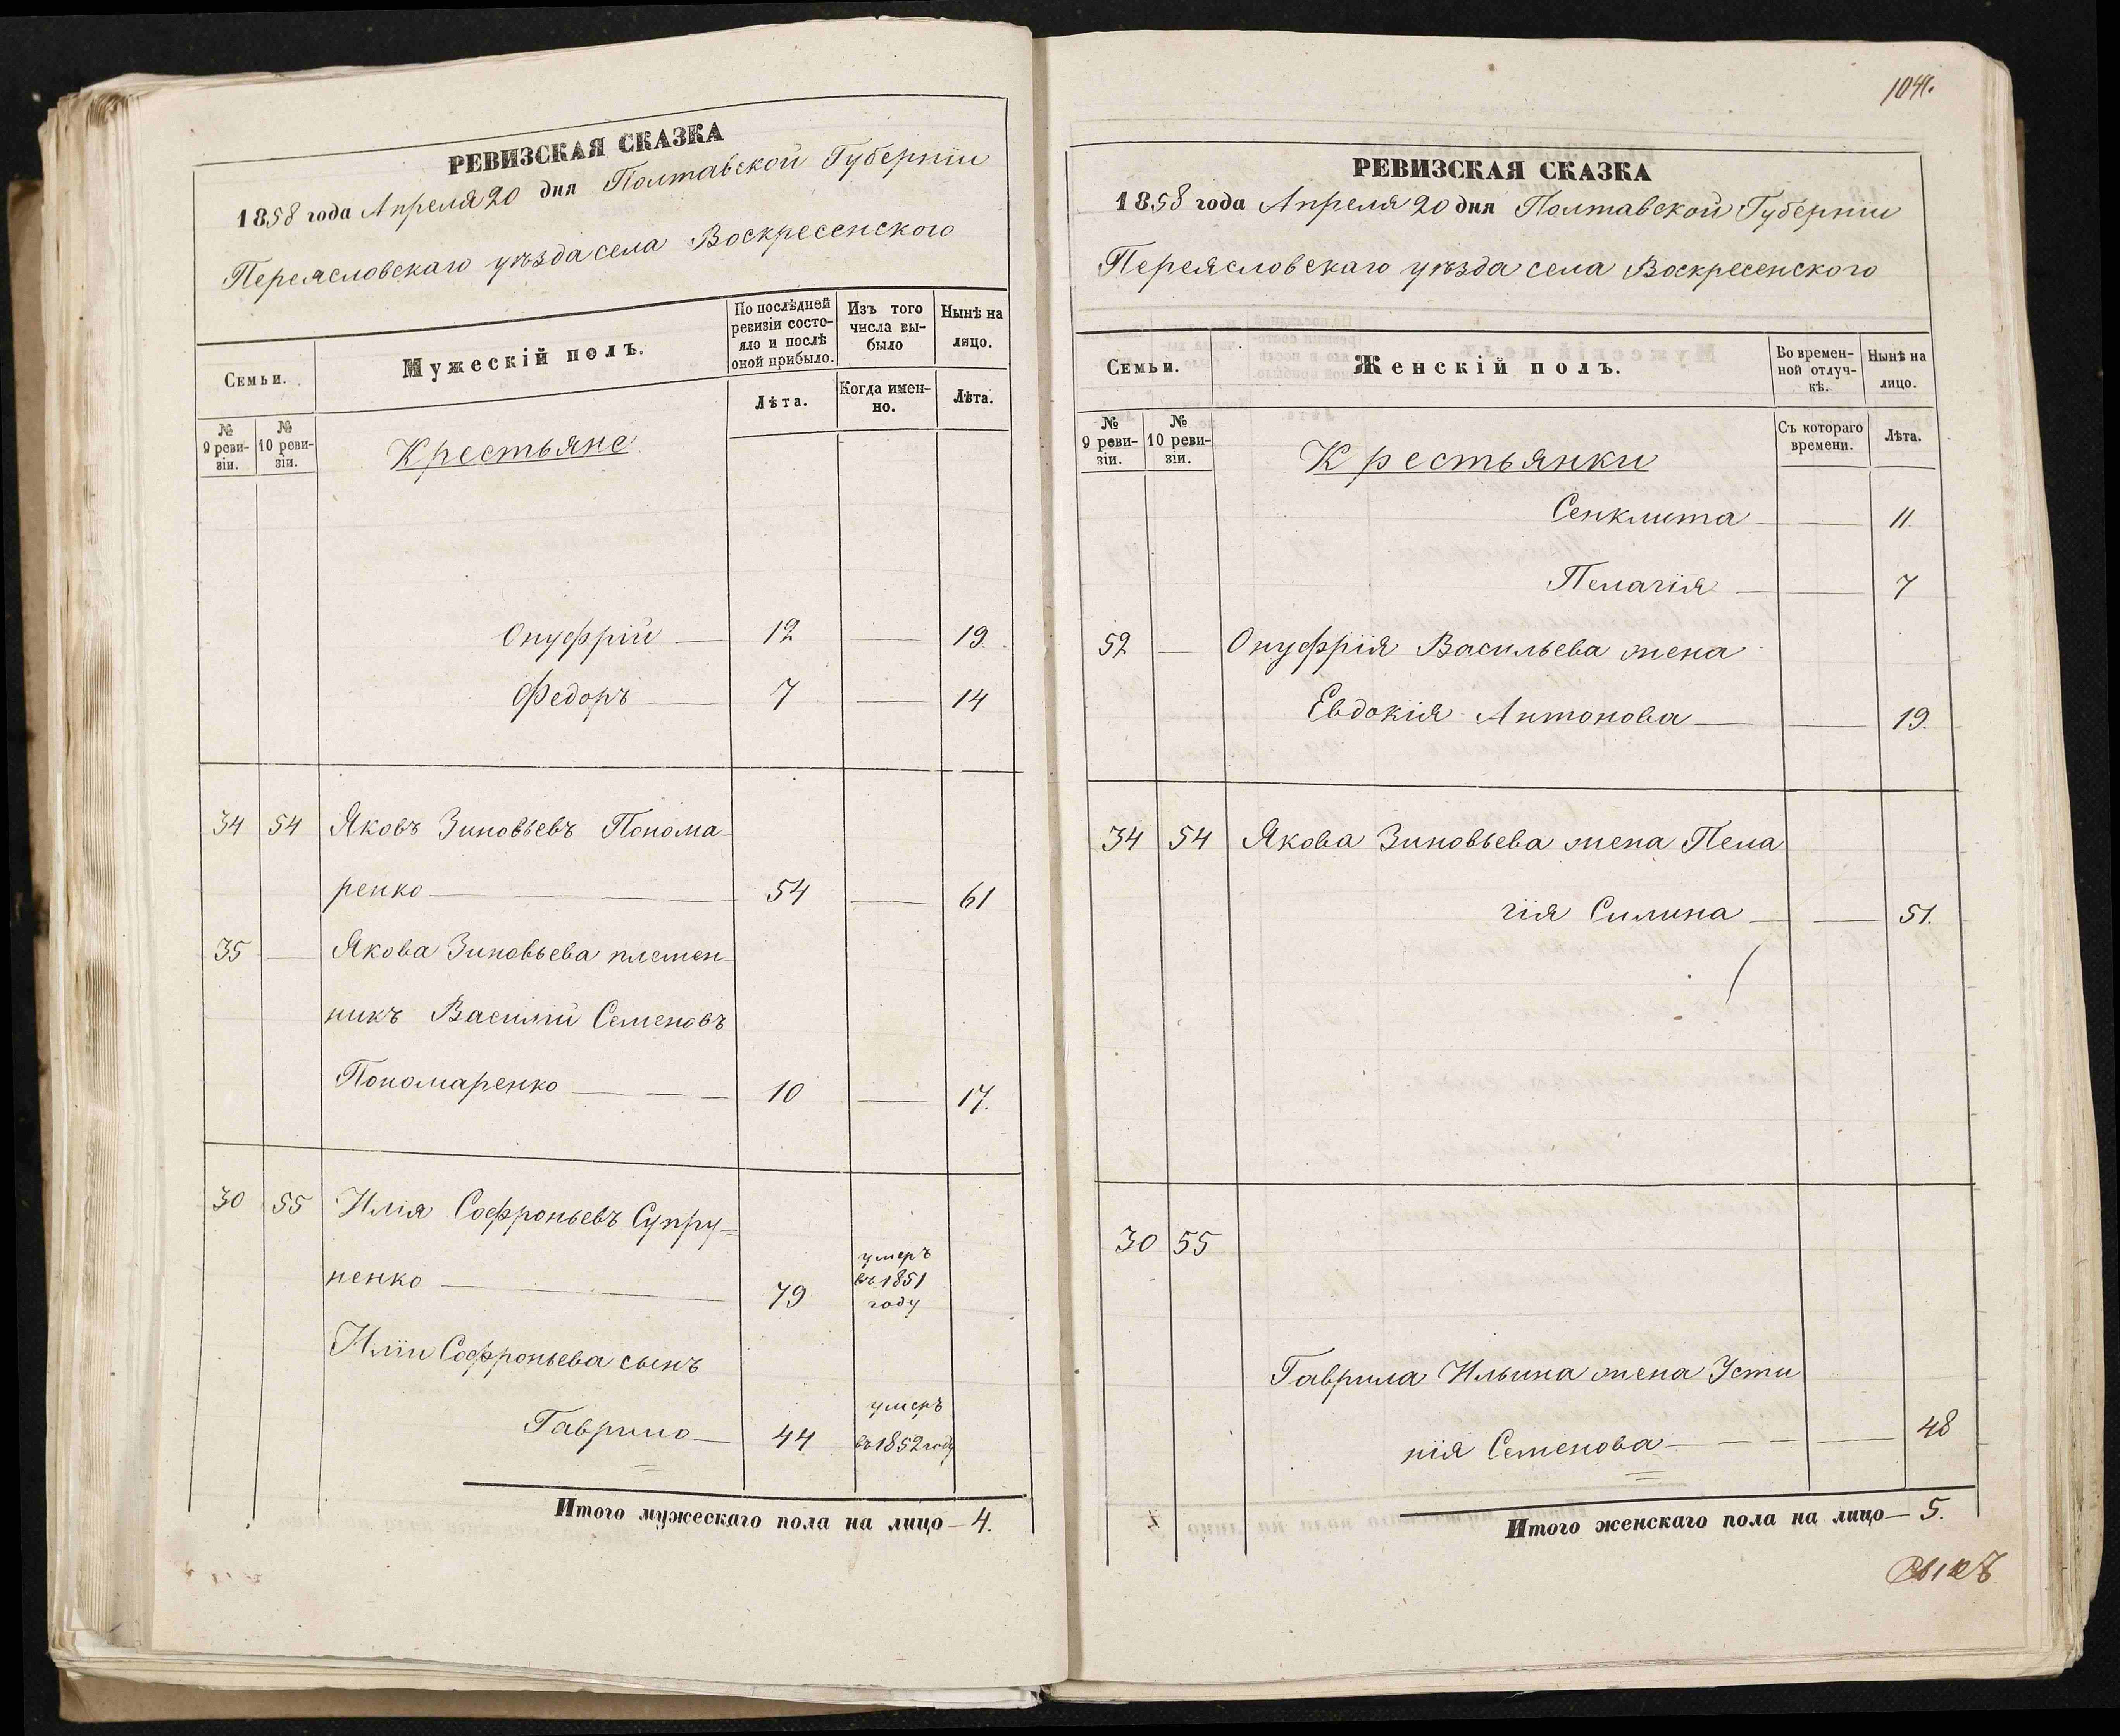 РЕВИЗСКАЯ СКАЗКА
1858 года Апреля 20 дня Полтавской Губерніи
Переясловскаго уѣзда села Воскресенского
Семьи.
Мужескій полъ.
По послѣдней ревизіи состояло и послѣ оной прибыло.
Изъ того числа выбыло
Нынѣ на лицо.
Лѣта.
Когда именно.
Лѣта.
№ 9 ревизіи.
№ 10 ревизіи.
Крестьяне
Онуфрій — 12 — 19.
Федоръ — 7 — 14
34 54 Яковъ Зиновьевъ Понома-
ренко — 54 — 61
35 — Якова Зиновьева племен-
никъ Василій Семеновъ
Пономаренко — 10 — 17.
30 55 Илія Софроньевъ Супру=
ненко — 79 умеръ въ 1851 году
Иліи Софроньева сынъ
Гаврило — 44 умеръ въ 1852 году
Итого мужескаго пола на лицо — 4.
РЕВИЗСКАЯ СКАЗКА
1858 года Апреля 20 дня Полтавской Губерніи
Переясловскаго уѣзда села Воскресенского
Семьи.
Женскій полъ.
Во временной отлучкѣ.
Нынѣ на лицо.
№ 9 ревизіи.
№ 10 ревизіи.
Съ котораго времени.
Лѣта.
Крестьянки
Сенклита — 11.
Пелагія — 7
52 — Онуфрія Васильева жена
Евдокія Антонова — 19.
34 54 Якова Зиновьева жена Пела
гія Силина — 51.
30 55
Гаврила Ильина жена Усти
нія Семенова — 48
Итого женскаго пола на лицо — 5.